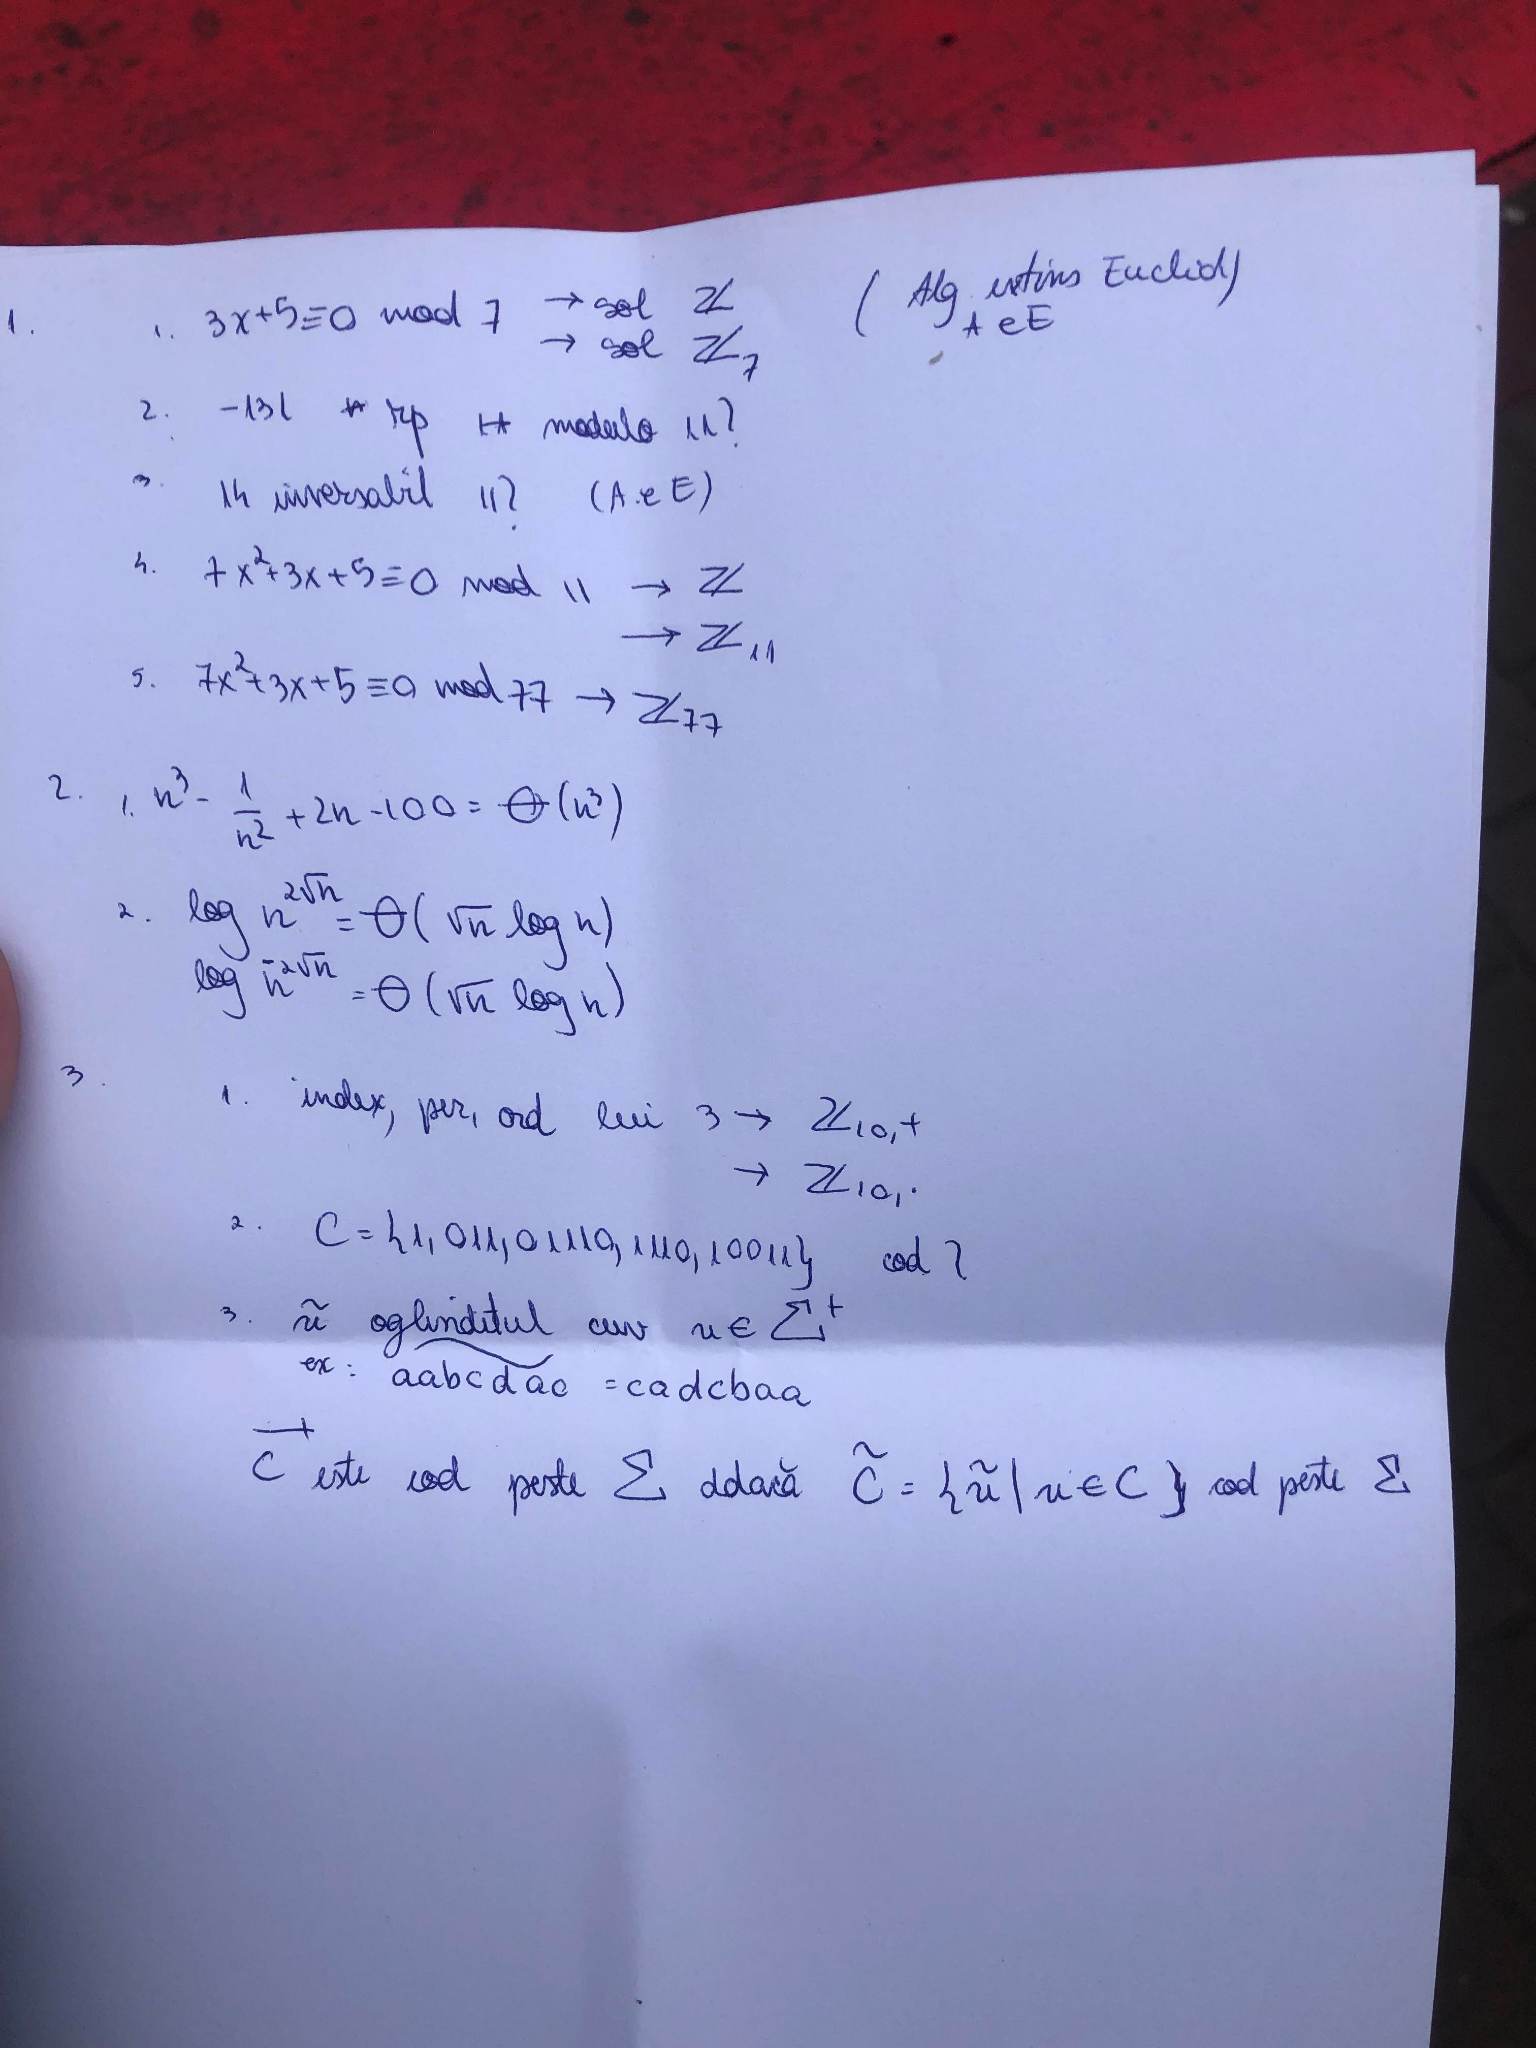 1. 1. 3x+5≡0 mod 7 → sol ℤ (Alg extins Euclid)
→ sol ℤ₇ AeE
2. -131 rp modulo 11?
3. 14 inversabil 11? (A.e E)
4. 7x²+3x+5≡0 mod 11 → ℤ
→ ℤ₁₁
5. 7x²+3x+5≡0 mod 77 → ℤ₇₇
2. 1. n³- 1/n² +2n-100=Θ(n³)
2. log n^{2√n} = Θ(√n log n)
log n^{-2√n} = Θ(√n log n)
3. 1. index, per, ord lui 3 → ℤ₁₀,+
→ ℤ₁₀,·
2. C={1, 011, 01110, 1110, 10011} cod?
3. ũ oglinditul cuv u∈Σ⁺
ex: aabcdac =cadcbaa
C este cod peste Σ ddacă C̃ = {ũ | u∈C} cod peste Σ